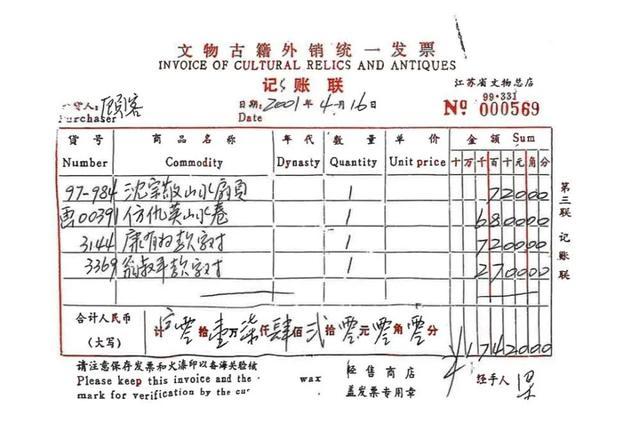 文物古籍外销统一发票
INVOICE OF CULTURAL RELICS AND ANTIQUES
记账联
江苏省文物总店
99·331
人: 顾客
Purchaser
日期: 2001年4月16
Date
№ 000569
货号 商品名称 年代 数量 单价 金额 Sum
Number Commodity Dynasty Quantity Unit price 十万千百十元角分
97-984 沈宗敬山水扇页 1 72000
画00391 仿仇英山水卷 1 680000
3144 康有为款字对 1 720000
3369 翁叔平款字对 1 270000
第三联 记账联
合计人民币
(大写)
计 零拾壹万柒仟肆佰弍拾零元零角零分
¥1742000
请注意保存发票和火漆印以备海关验核
Please keep this invoice and the wax
mark for verification by the cu
经售商店
盖发票专用章
经手人 梁